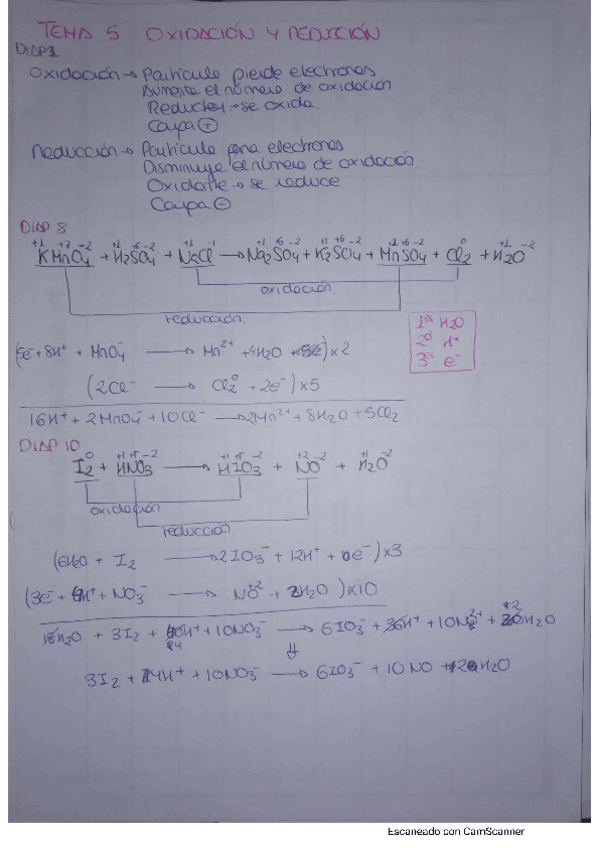 TEMA 5 OXIDACIÓN Y REDUCCIÓN
DIAP 2
Oxidación → Partícula pierde electrones
Aumenta el número de oxidación
Reductor → se oxida.
Carga ⊕
Reducción → Partícula gana electrones
Disminuye el número de oxidación.
Oxidante → se reduce
Carga ⊖
DIAP 8
+1 +7 -2 +1 +6 -2 +1 -1 +1 +6 -2 +1 +6 -2 +2 +6 -2 0 +1 -2
KMnO4 + H2SO4 + NaCl → Na2SO4 + K2SO4 + MnSO4 + Cl2 + H2O
oxidación
reducción.
1º H2O
2º H+
3º e-
(5e- + 8H+ + MnO4- → Mn2+ + 4H2O) x2
(2Cl- → Cl2 0 + 2e-) x5
16H+ + 2MnO4- + 10Cl- → 2Mn2+ + 8H2O + 5Cl2
DIAP 10
0 +1 +5 -2 +1 +5 -2 +2 -2 +1 -2
I2 + HNO3 → HIO3 + NO + H2O
oxidación
reducción.
(6H2O + I2 → 2IO3- + 12H+ + 10e-) x3
(3e- + 4H+ + NO3- → NO+2 + 2H2O) x10
18H2O + 3I2 + 40H+ + 10NO3- → 6IO3- + 36H+ + 10NO2+ + 20H2O
3I2 + 4H+ + 10NO3- → 6IO3- + 10NO + 2H2O
Escaneado con CamScanner